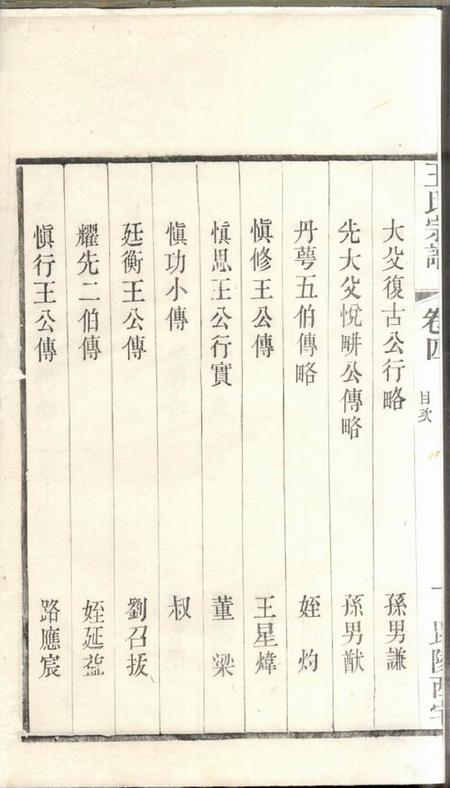 王氏宗譜 卷四 目次
大父復古公行略 孫男謙
先大父悅畊公傳略 孫男猷
丹萼五伯傳略 姪灼
愼修王公傳 王星煒
愼思王公行實 董梁
愼功小傳 叔
廷衡王公傳 劉召拔
耀先二伯傳 姪延益
愼行王公傳 路應宸